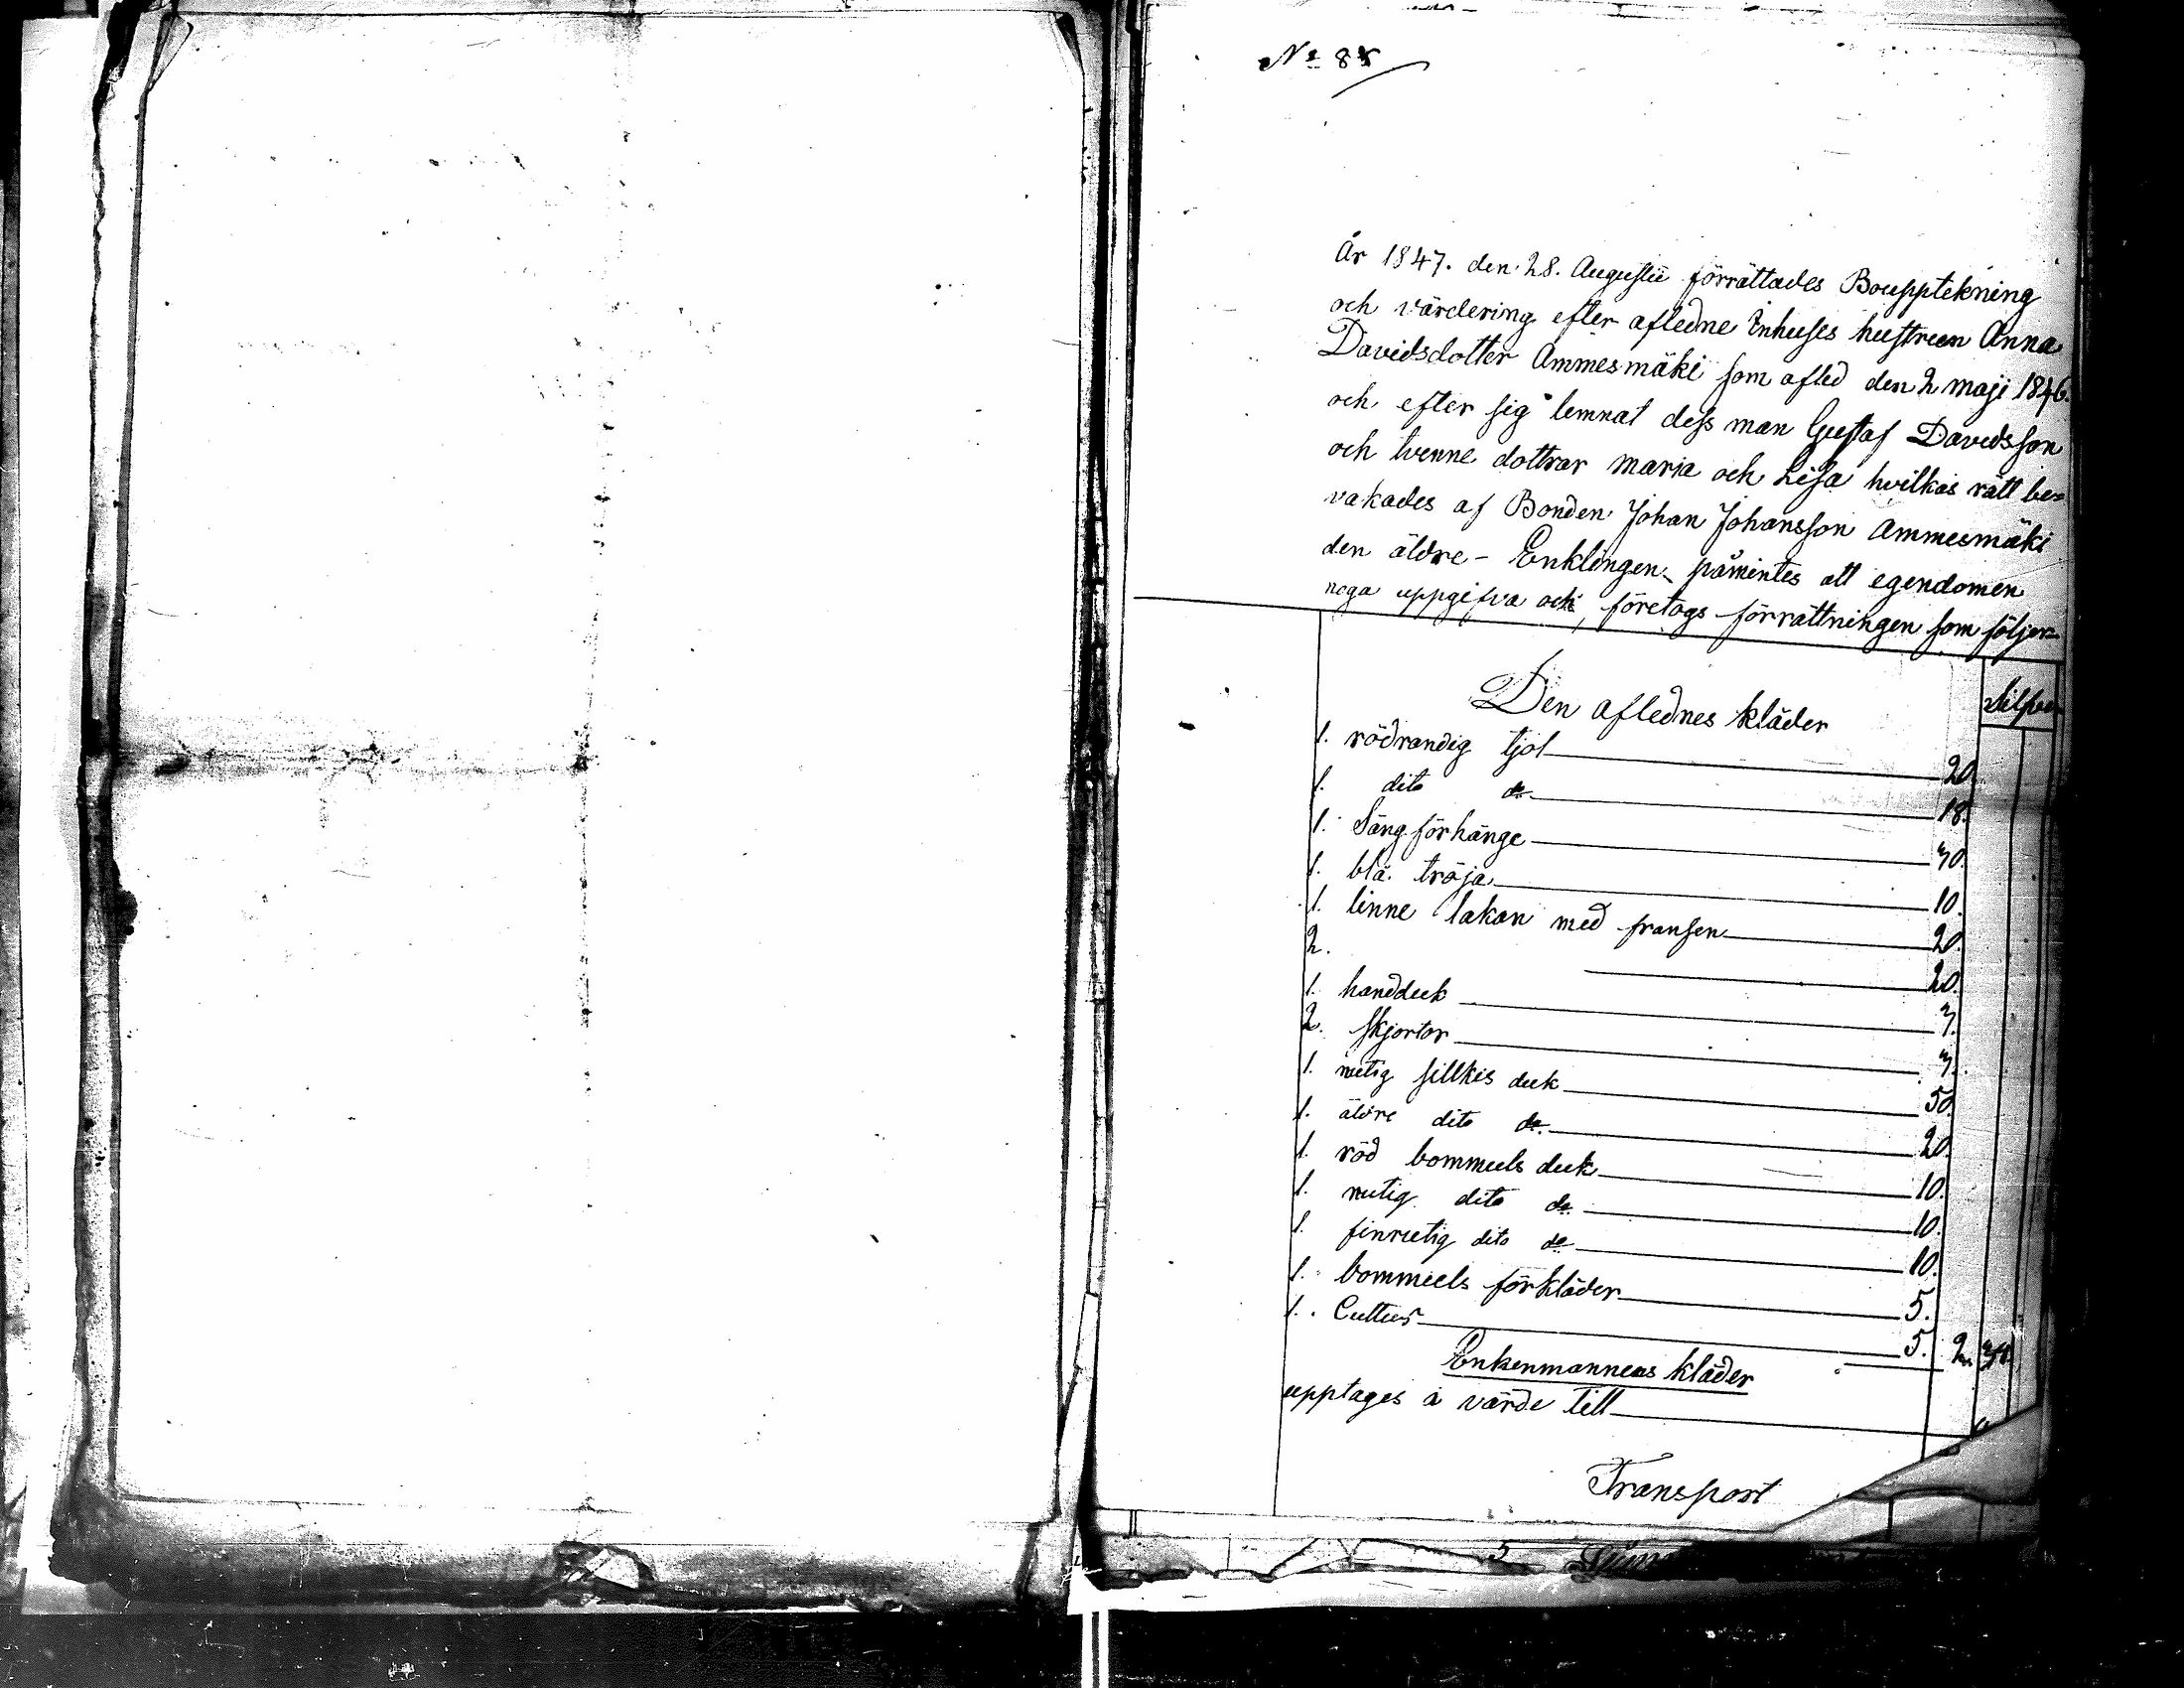 År 1847. den 28. Augustii förrättades Bouppteckning
och värdering efter afledne Inhuses hustrun Anna
Davidsdotter Ammesmäki som afled den 2 maji 1846.
och efter sig lemnat dess man Gustaf Davidsson
och tvenne dottrar maria och Lisa hvilkas rätt be=
vakades af Bonden Johan Johansson Ammesmäki
den äldre - Enklingen påmintes att egendomen
noga uppgifva och företogs förrättningen som följer=
Silfver
Den aflednes kläder
1. rödrandig tjol 20
1. dito do 18.
1. Sängförhänge 30.
1. blå tröja 10.
1. linne lakan med fransen 20.
2. 20.
1. handduk 3.
2. skjortor 3.
1. rutig sillkis duk 50.
1. äldre dito do. 20.
1. röd bommuls duk 10.
1. rutig dito do 10.
1. finrutig dito do 10.
1. bommuls förkläder 5.
1. Cuttus 5. 2. 34.
Enkenmannens kläder
upptages à värde till
Transport